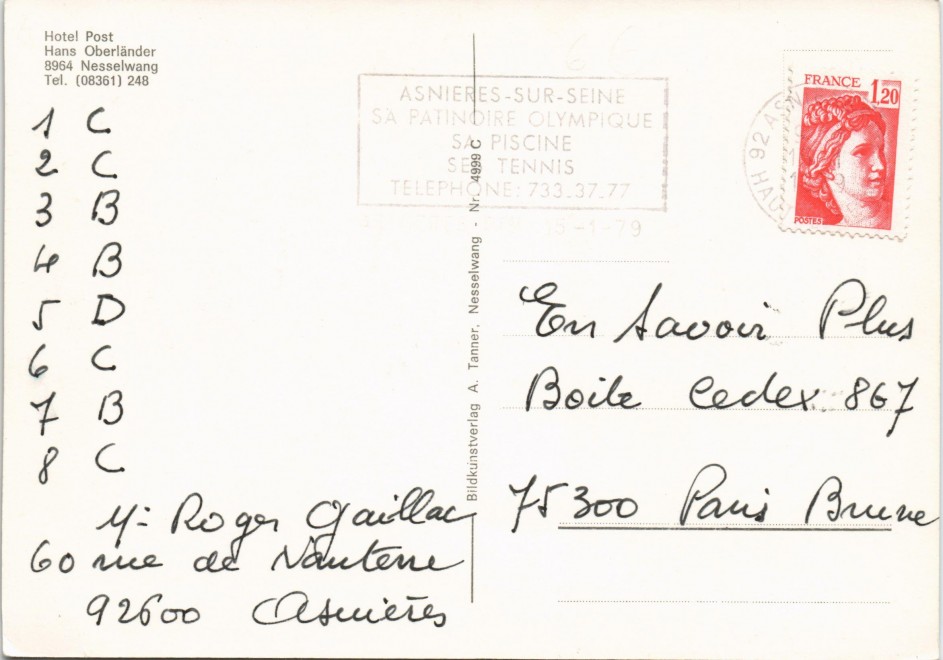 Hotel Post
Hans Oberländer
8964 Nesselwang
Tel. (08361) 248
1 C
2 C
3 B
4 B
5 D
6 C
7 B
8 C
Mr Roger Gaillac
60 rue de Nanterre
92600 Asnières
Bildkunstverlag A. Tanner, Nesselwang - Nr. 4999 C
ASNIERES-SUR-SEINE
SA PATINOIRE OLYMPIQUE
SA PISCINE
SES TENNIS
TELEPHONE: 733_37_77
15-1-79
FRANCE 1,20
POSTES
92 ASN
HAU
En Savoir Plus
Boite Cedex 867
75300 Paris Brune